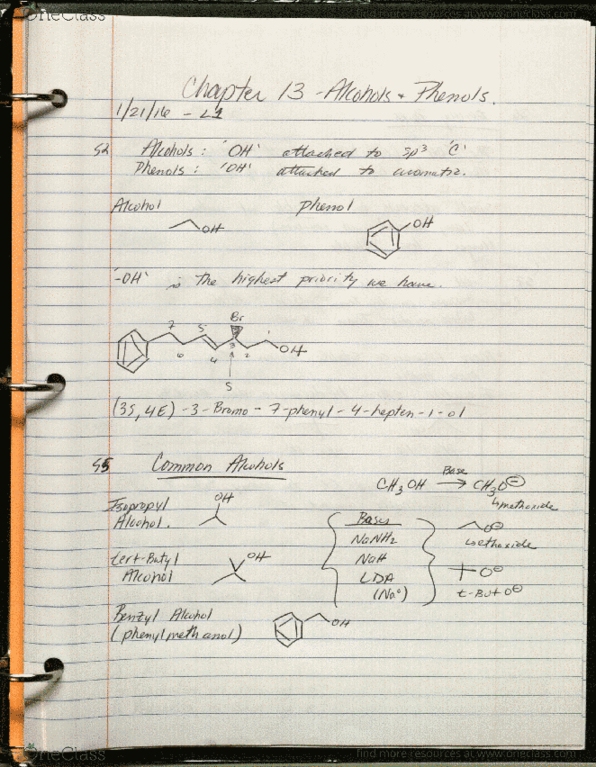 OneClass
find more resources at www.oneclass.com
Chapter 13 - Alcohols + Phenols.
1/21/16 - L1
S2 Alcohols : 'OH' attached to sp³ 'C'
Phenols : 'OH' attached to aromatic.
Alcohol Phenol
OH OH
'-OH' is the highest priority we have.
Br
7 5 3 1
OH
6 4 2
S
(3S, 4E) - 3 - Bromo - 7 - phenyl - 4 - hepten - 1 - ol
S5 Common Alcohols
CH₃OH Base → CH₃O⊖
↳methoxide
Isopropyl OH
Alcohol.
Bases
NaNH₂
NaH
LDA
(Na°)
O⊖
↳ethoxide
O⊖
t-ButO⊖
tert-Butyl OH
Alcohol
Benzyl Alcohol
(phenylmethanol) OH
OneClass
find more resources at www.oneclass.com